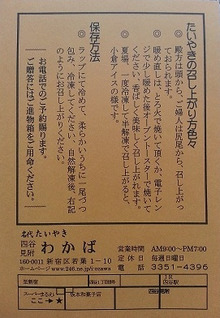 たいやきの召し上がり方色々
◎殿方は頭から、ご婦人は尻尾から、召し上がっ
ておられます。
◎暖め直しは、とろ火で焼いて頂くか、電子レン
ジで少し暖めた後オーブントースターで焼いて
ください。香ばしく美味しく召し上がれます。
◎夏場、一度冷凍して、半解凍で召し上がると、
小倉アイスの様です。
保存方法
◎ラップにて冷めて、柔らかいうちに一尾づつ
包み、冷凍してください。自然解凍後、右記
のようにお召し上がりください。
お電話でのご予約賜ります。
ご贈答にはご進物箱をご用命ください。
名代 たいやき
四谷見附 わかば
160-0011 新宿区若葉1-10
営業時間 AM9:00〜PM7:00
定休日 毎週日曜日
電話 3351-4396
ここ→★